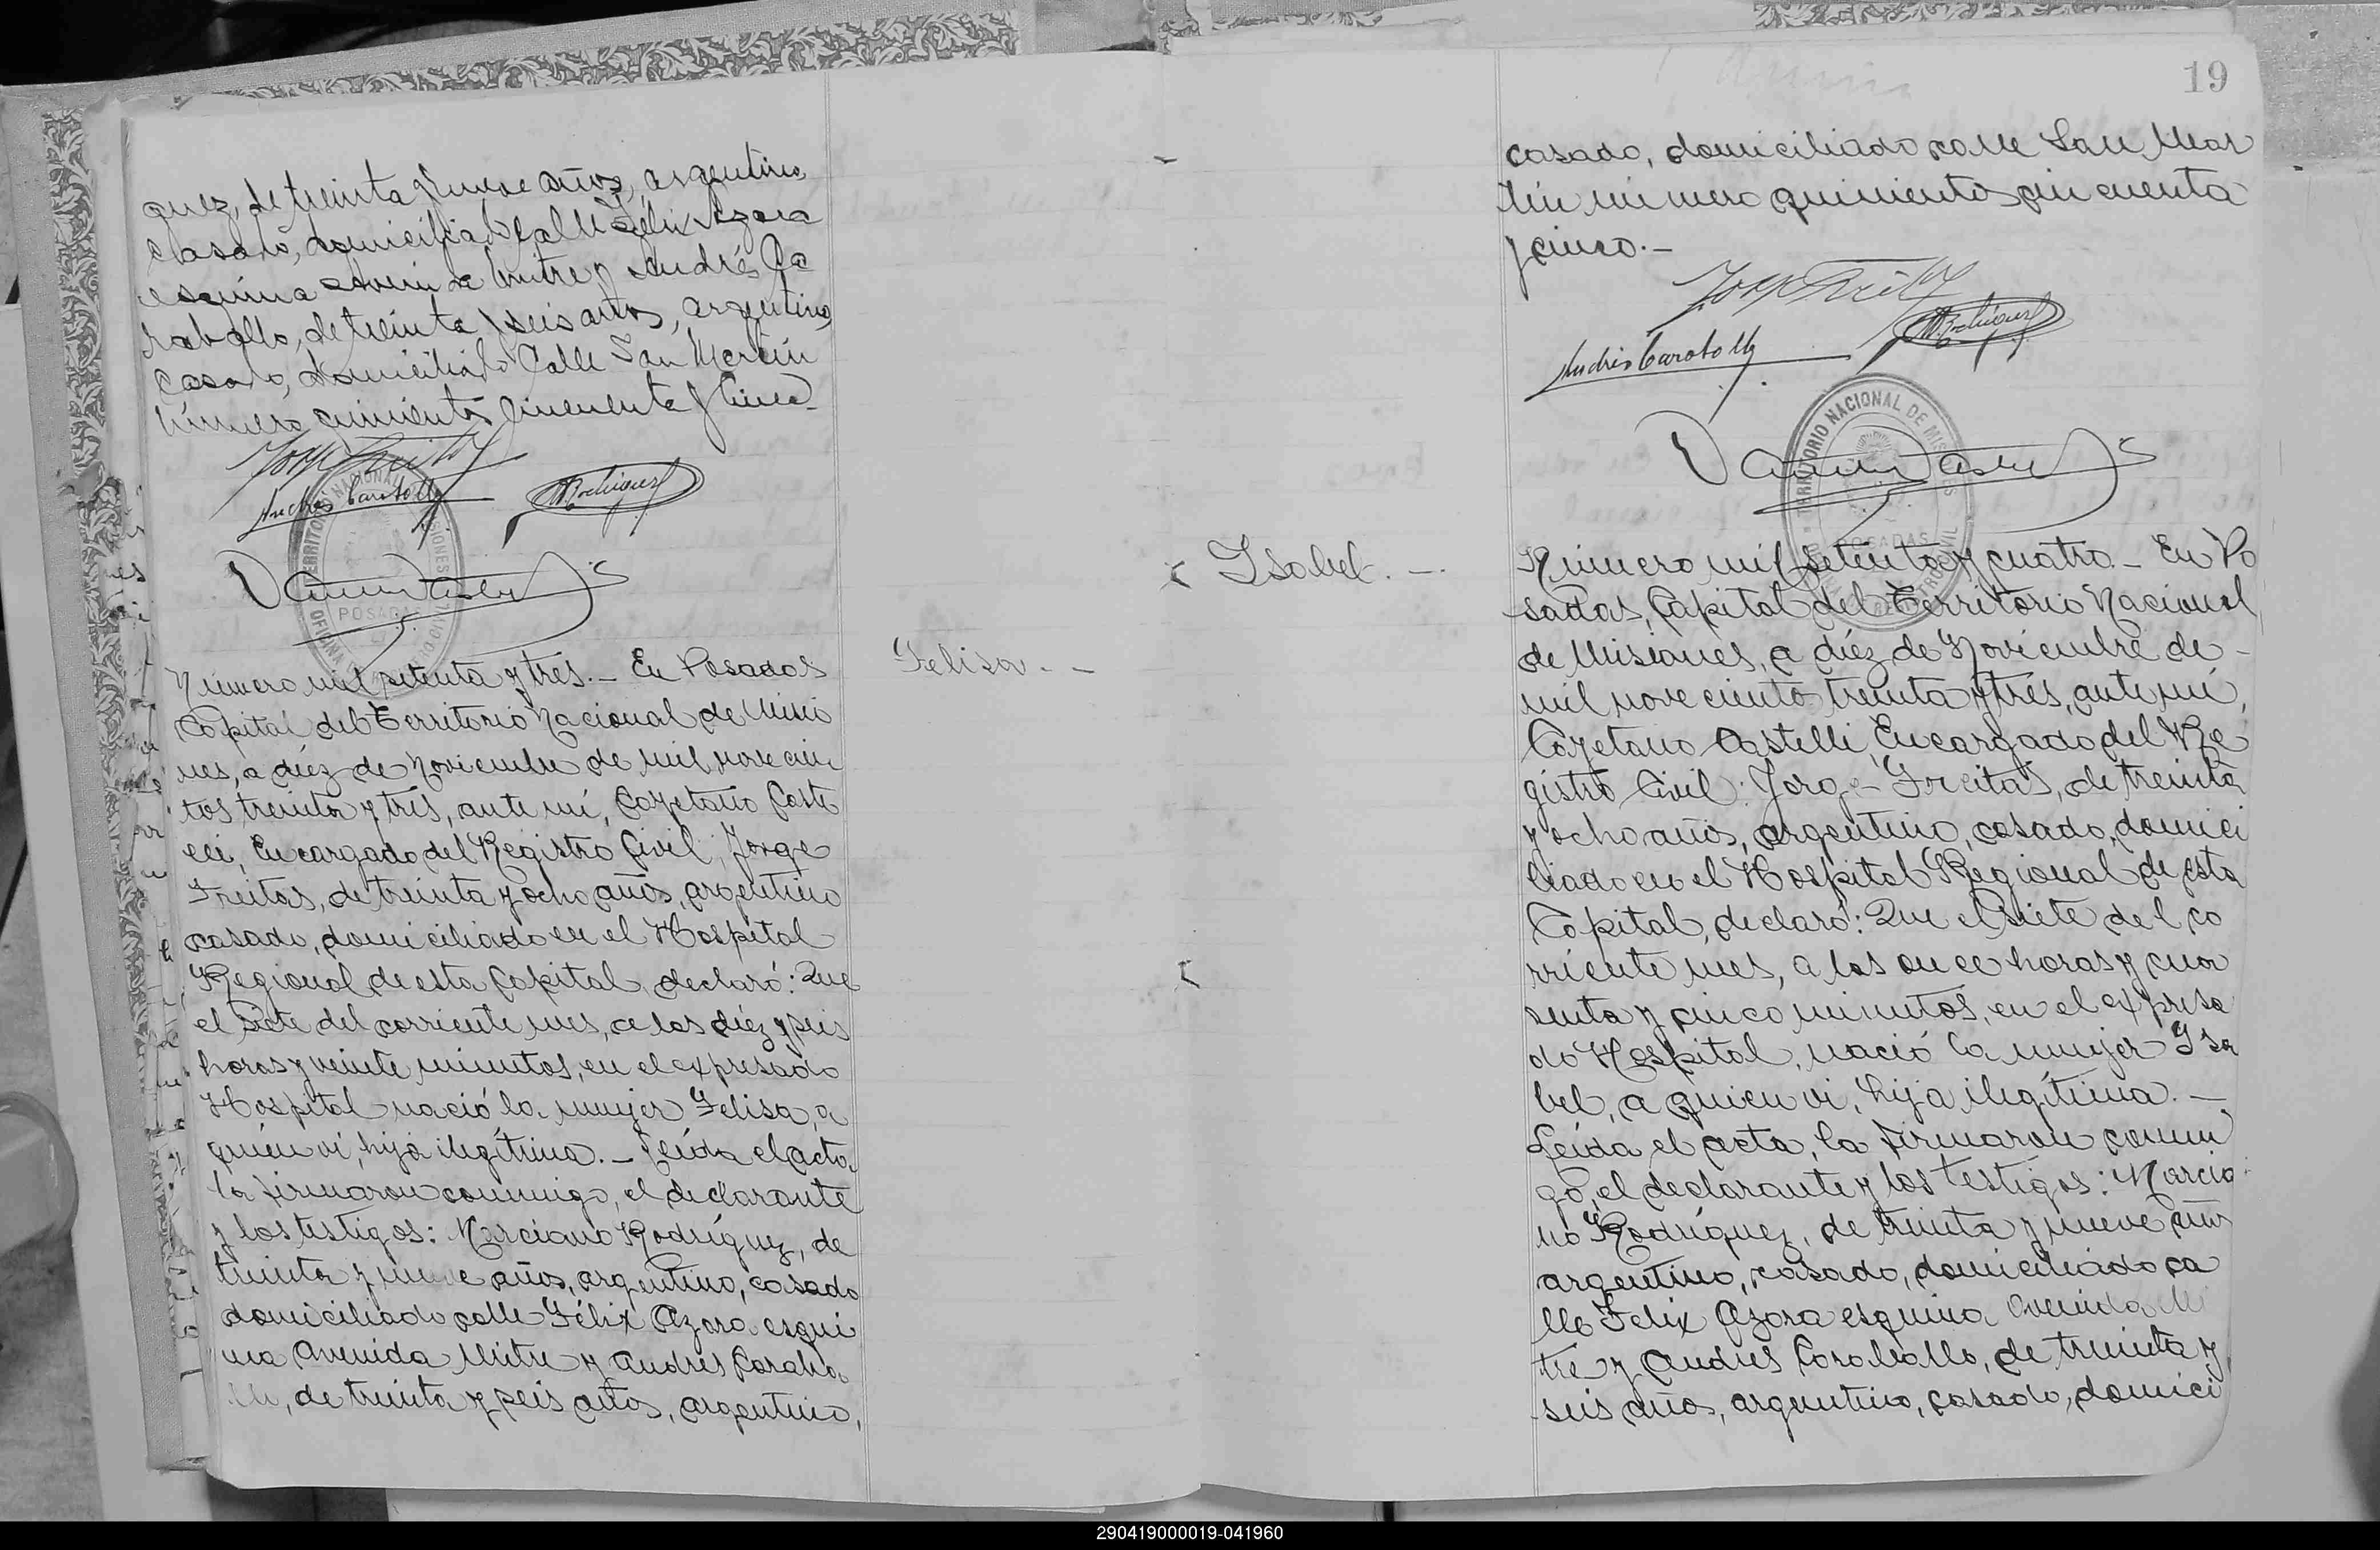 quez, de treinta y nueve años, argentino,
casado, domiciliado calle Félix Azara
esquina Avenida Mitre y Andrés Ca
raballo, de treinta y seis años, argentino,
casado, domiciliado Calle San Martín
número quinientos cincuenta y cinco.
Andrés Caraballo
MRodríguez
TERRITORIO NACIONAL DE MISIONES
POSADAS
Número mil setenta y tres.- En Posadas
Capital del Territorio Nacional de Misio
nes, a diéz de Noviembre de mil novecien
tos treinta y tres, ante mí, Cayetano Caste
lli, Encargado del Registro Civil, Jorge
Freitas, de treinta y ocho años, argentino
casado, domiciliado en el Hospital
Regional de esta Capital, declaró: Que
el siete del corriente mes, a las diéz y seis
horas y veinte minutos, en el expresado
Hospital nació la mujer Felisa, a
quién vi, hija ilegítima.- Leída el acta,
la firmaron conmigo, el declarante
y los testigos: Marciano Rodríguez, de
treinta y nueve años, argentino, casado
domiciliado calle Félix Azara esqui
na Avenida Mitre y Andrés Caraba
llo, de treinta y seis años, argentino,
Felisa.--
19
casado, domiciliado calle San Mar
tín número quinientos cincuenta
y cinco.-
Andrés Caraballo
MRodríguez
TERRITORIO NACIONAL DE MISIONES
POSADAS
Isabel.-.
Número mil setenta y cuatro.- En Po
sadas, Capital del Territorio Nacional
de Misiones, a diéz de Noviembre de-
mil novecientos treinta y tres, ante mí,
Cayetano Castelli, Encargado del Re
gistro Civil: Jorge Freitas, de treinta
y ocho años, argentino, casado, domici
liado en el Hospital Regional de esta
Capital, declaró: Que el siete del co
rriente mes, a las once horas y cua
renta y cinco minutos, en el expresa
do Hospital, nació la mujer Isa
bel, a quien vi, hija ilegítima.-
Leída el acta, la firmaron conmi
go, el declarante y los testigos: Marcia
no Rodríguez, de treinta y nueve años
argentino, casado, domiciliado ca
lle Felix Azara esquina Avenida Mi
tre y Andrés Caraballo, de treinta y
seis años, argentino, casado, domici
290419000019-041960